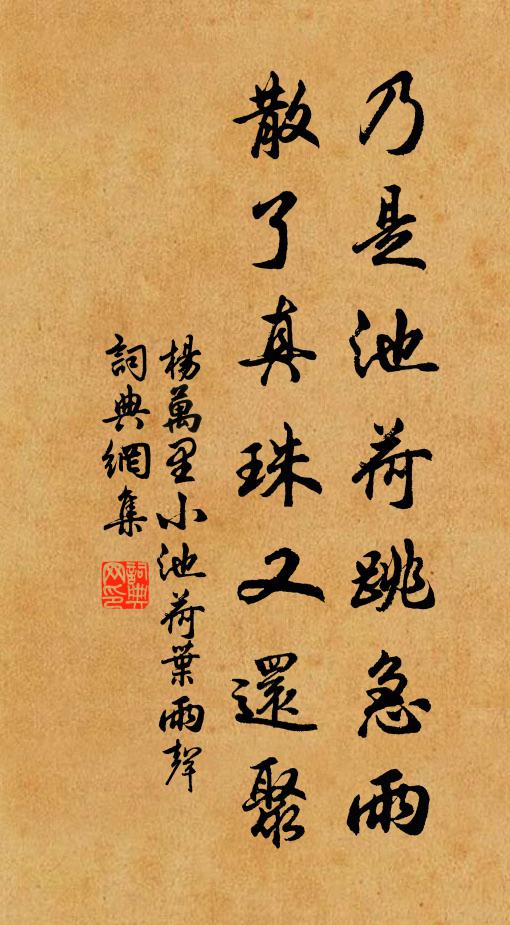 乃是池荷跳急雨
散了真珠又還聚
楊萬里小池荷葉雨聲
詞典網集
詞典網印